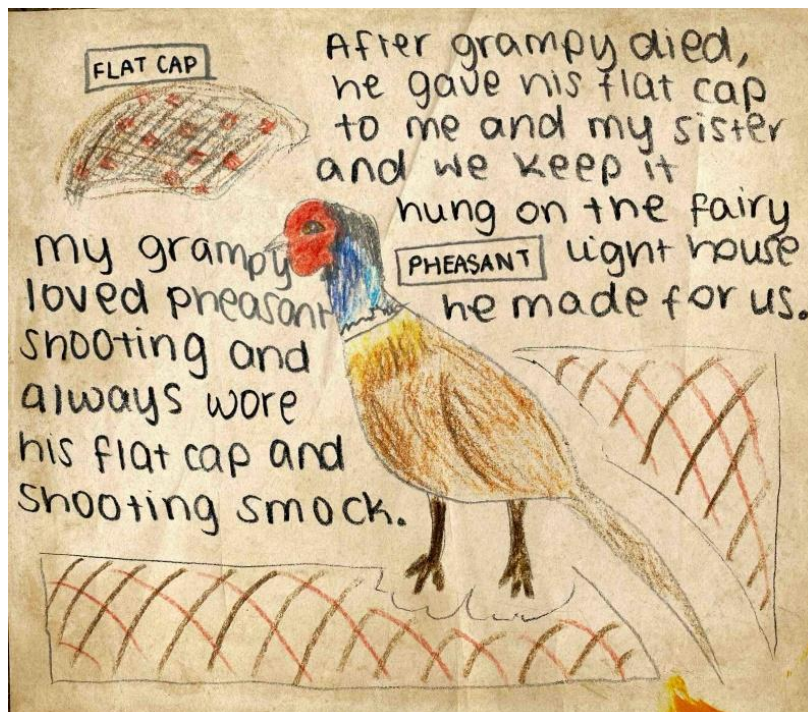 FLAT CAP
After grampy died,
he gave his flat cap
to me and my sister
and we keep it
hung on the fairy
light house
he made for us.
PHEASANT
my grampy
loved pheasant
shooting and
always wore
his flat cap and
shooting smock.